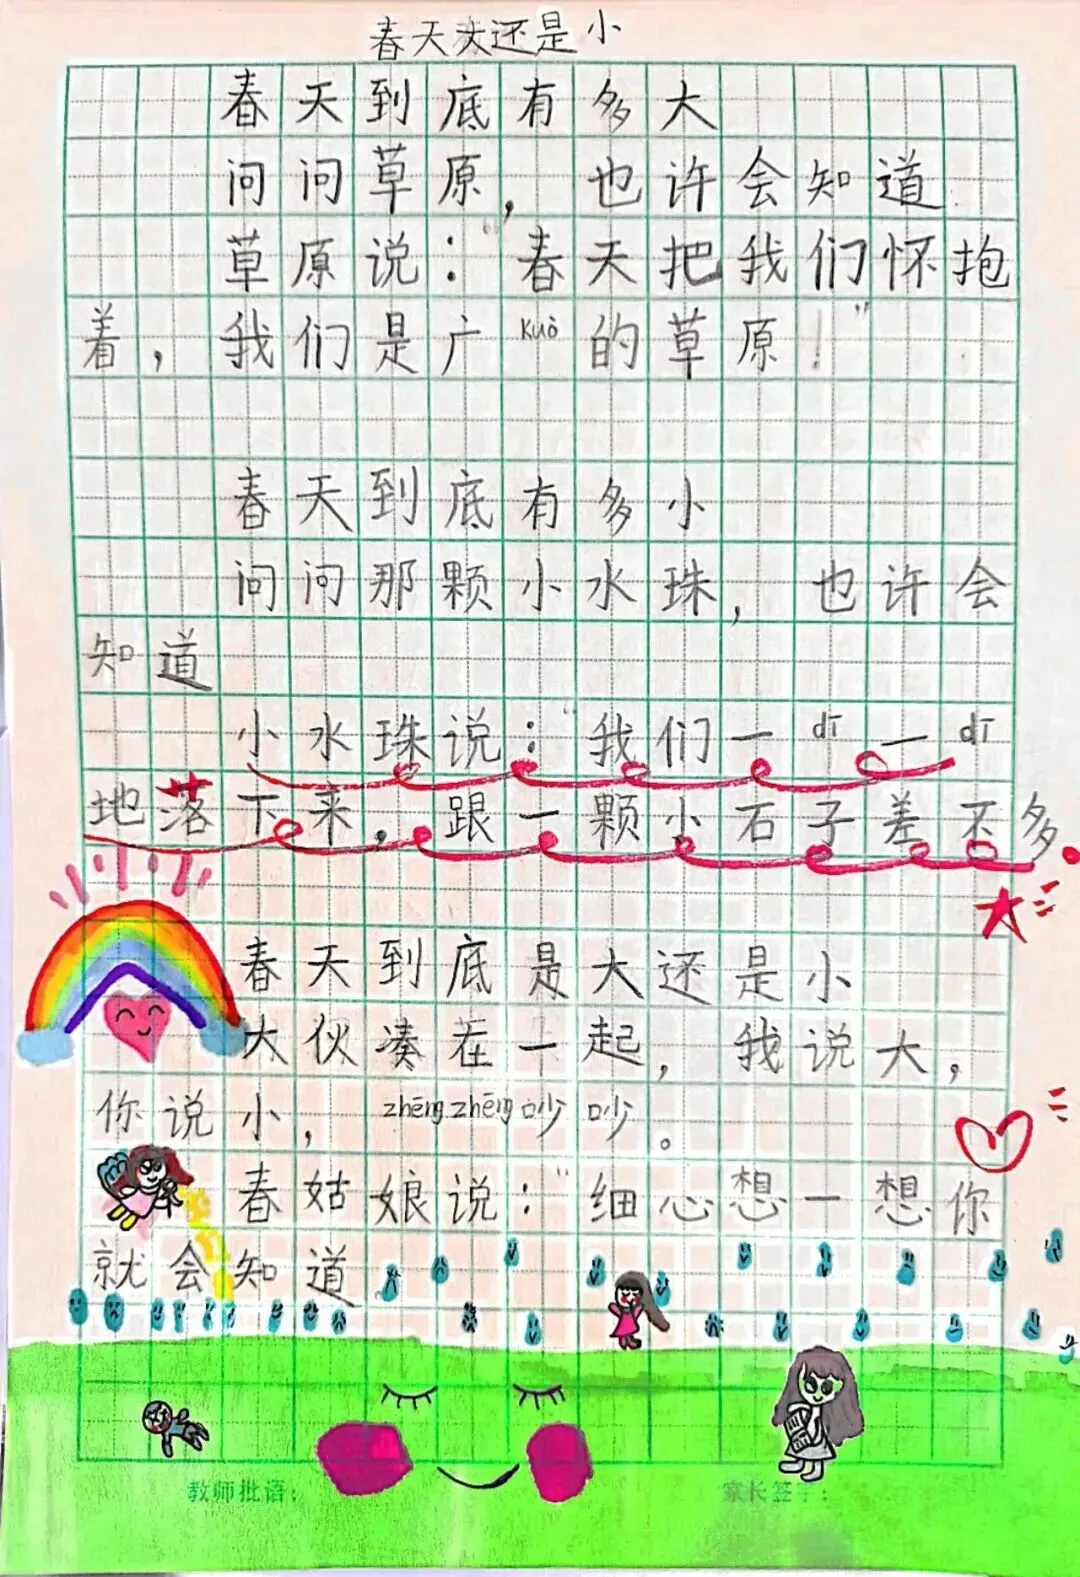 春天大还是小
春天到底有多大
问问草原，也许会知道
草原说：“春天把我们怀抱
着，我们是广kuò的草原！”
春天到底有多小
问问那颗小水珠，也许会
知道
小水珠说：“我们一dī一dī
地落下来，跟一颗小石子差不多
春天到底是大还是小
大伙凑在一起，我说大，
你说小，zhēngzhēng吵吵。
春姑娘说：“细心想一想你
就会知道
教师批语：
家长签字：